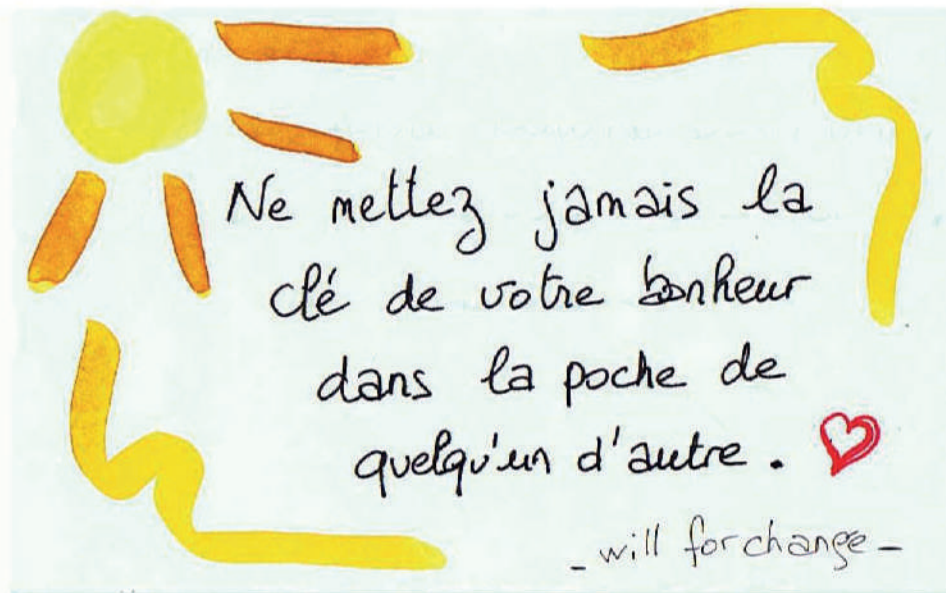 Ne mettez jamais la
clé de votre bonheur
dans la poche de
quelqu'un d'autre.
- will for change -